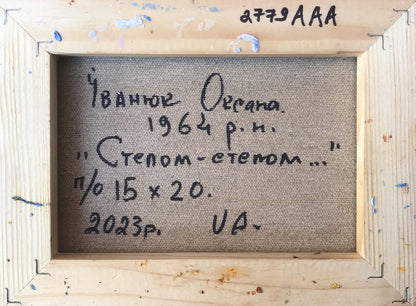 2779AAA
Іванюк Оксана.
1964 р.н.
"Степом-степом..."
п/о 15 x 20.
2023р. UA.